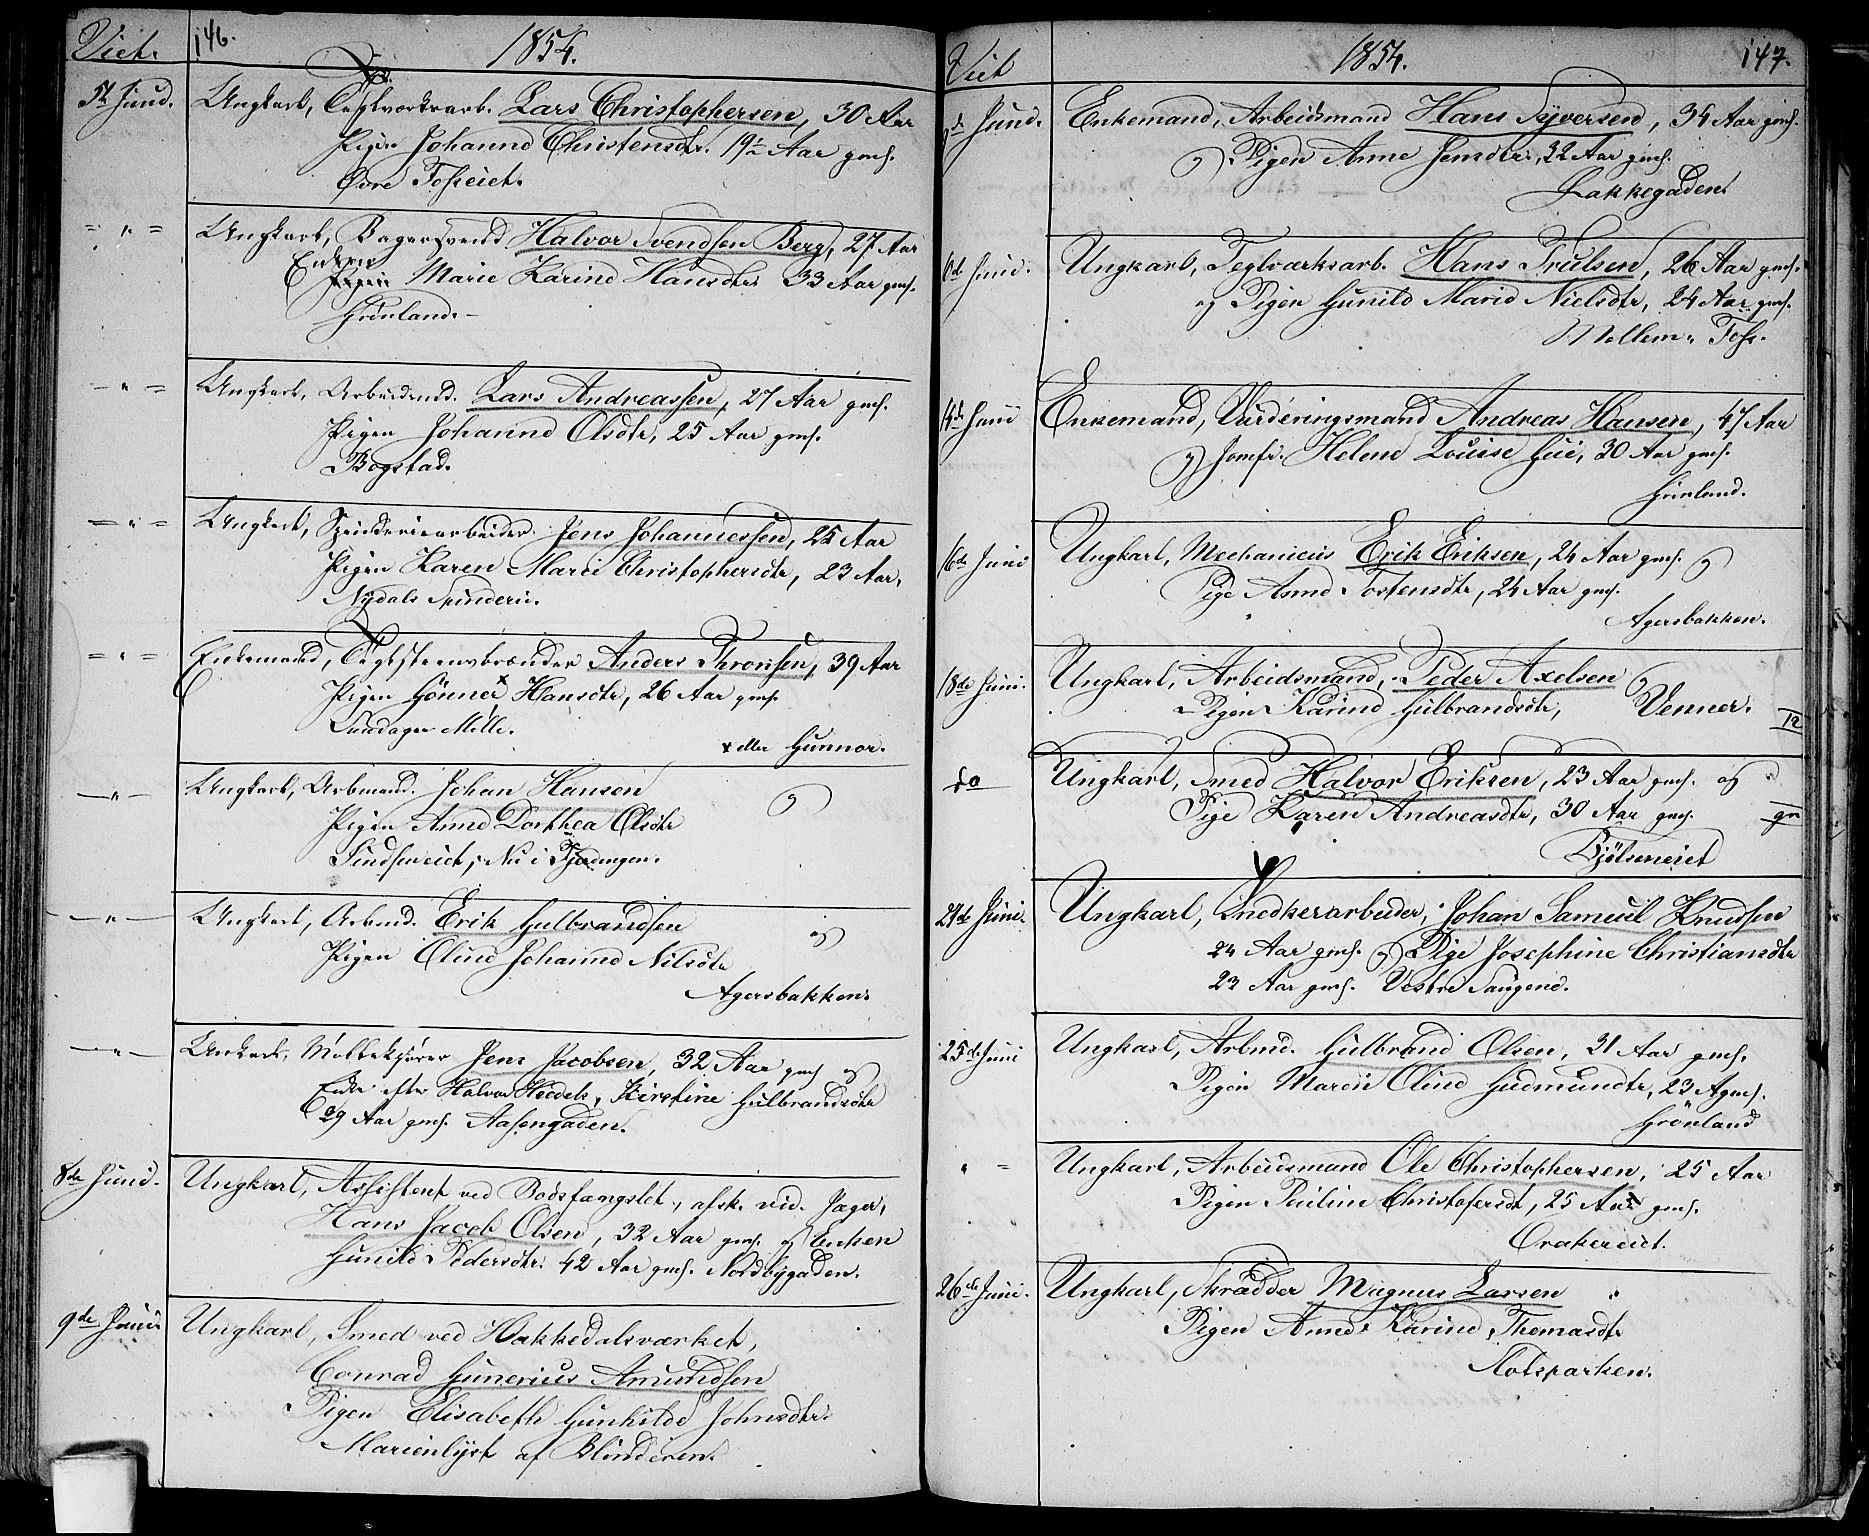 Viet. 146. 1854.
5te Junii. Ungkarl, Teglværksarb. Lars Christophersen, 30 Aar
Pigen Johanne Christensdtr. 19½ Aar gmf.
Øvre Fosseiet.
= " = Ungkarl, Bagersvend Halvor Svendsen Berg, 27 Aar
Enken
Pigen Marie Karine Hansdtr. 33 Aar gmf.
Grönland.
- " = Ungkarl, Arbeidsmd. Lars Andreassen, 27 Aar gmf.
Pigen Johanne Olsdtr, 25 Aar gmf.
Bogstad.
= " = Ungkarl, Spinderiearbeider Jens Johannessen, 25 Aar
Pigen Karen Marie Christophersdtr, 23 Aar,
Nydals Spinderi.
= " = Enkemand, Teglsteensbrænder Anders Thronsen, 39 Aar
Pigen Gönner x Hansdtr, 26 Aar gmf.
Mölle.
x eller Gunnor.
- " - Ungkarl, Arbmand. Johan Hansen og
Pigen Anne Dorthea Olsdtr
Nu i
- " - Ungkarl, Arbmd. Erik Gulbrandsen og
Pigen Oline Johanne Nilsdtr
Agersbakken.
- " - Ungkarl, Möllekjörer Jens Jacobsen, 32 Aar gmf og
Enke efter Halvor Kirstine Gulbrandsdtr
39 Aar gmf. Aasengaden.
8de Junii. Ungkarl, Assistent ved Bodsfængslet, afsk. vid. Jæger,
Hans Jacob Olsen, 32 Aar gmf. og Enken
Gunild Pedersdtr. 42 Aar gmf. Nordbygaden.
9de Junii Ungkarl, Smed ved Hakkedalsværket,
Conrad Gunerius Amundsen
Pigen Elisabeth Gunhilde Johnsdtr.
Marienlyst af Blinderen.
Viet 1854. 147.
9de Junii. Enkemand, Arbeidsmand Hans Syversen, 34 Aar gmf.
og Pigen Anne Jensdtr, 32 Aar gmf.
Lakkegaden.
Junii. Ungkarl, Teglværksarb. Hans Trulsen, 26 Aar gmf.
og Pigen Gunild Marie Nielsdtr, 24 Aar gmf.
Mellem-Foss.
14de Junii Enkemand, Vurderingsmand Andreas Hansen, 47 Aar
og Jomfr. Helene Louise 30 Aar gmf.
Grönland.
16de Junii Ungkarl, Mechanicus Erik Eriksen, 24 Aar gmf. og
Pige Anne Tostensdtr, 24 Aar gmf.
Agersbakken.
18de Juni. Ungkarl, Arbeidsmand, Peder Axelsen og
Pigen Karine Gulbrandsdtr, Venner.
do Ungkarl, Smed Halvor Eriksen, 23 Aar gmf. og
Pige Karen Andreasdtr, 30 Aar gmf.
Bjölseneiet
21de Juni. Ungkarl, Snedkerarbeider, Johan Samuel Knudsen
24 Aar gmf. og Pige Josephine Christiansdtr
23 Aar gmf. Vestre Saugene.
25de Juni Ungkarl, Arbmd. Gulbrand Olsen, 31 Aar gmf.
Pigen Maren Oline Gudmundtr, 23 A gmf.
Grönland
" = Ungkarl, Arbeidsmand Ole Christophersen, 25 Aar
Pigen Pauline Christofersdt, 25 Aar gmf.
Orakereiet.
26de Juni. Ungkarl, Skrædder Magnus Larsen
Pigen Anne Karine Thomasdtr
Slotsparken.